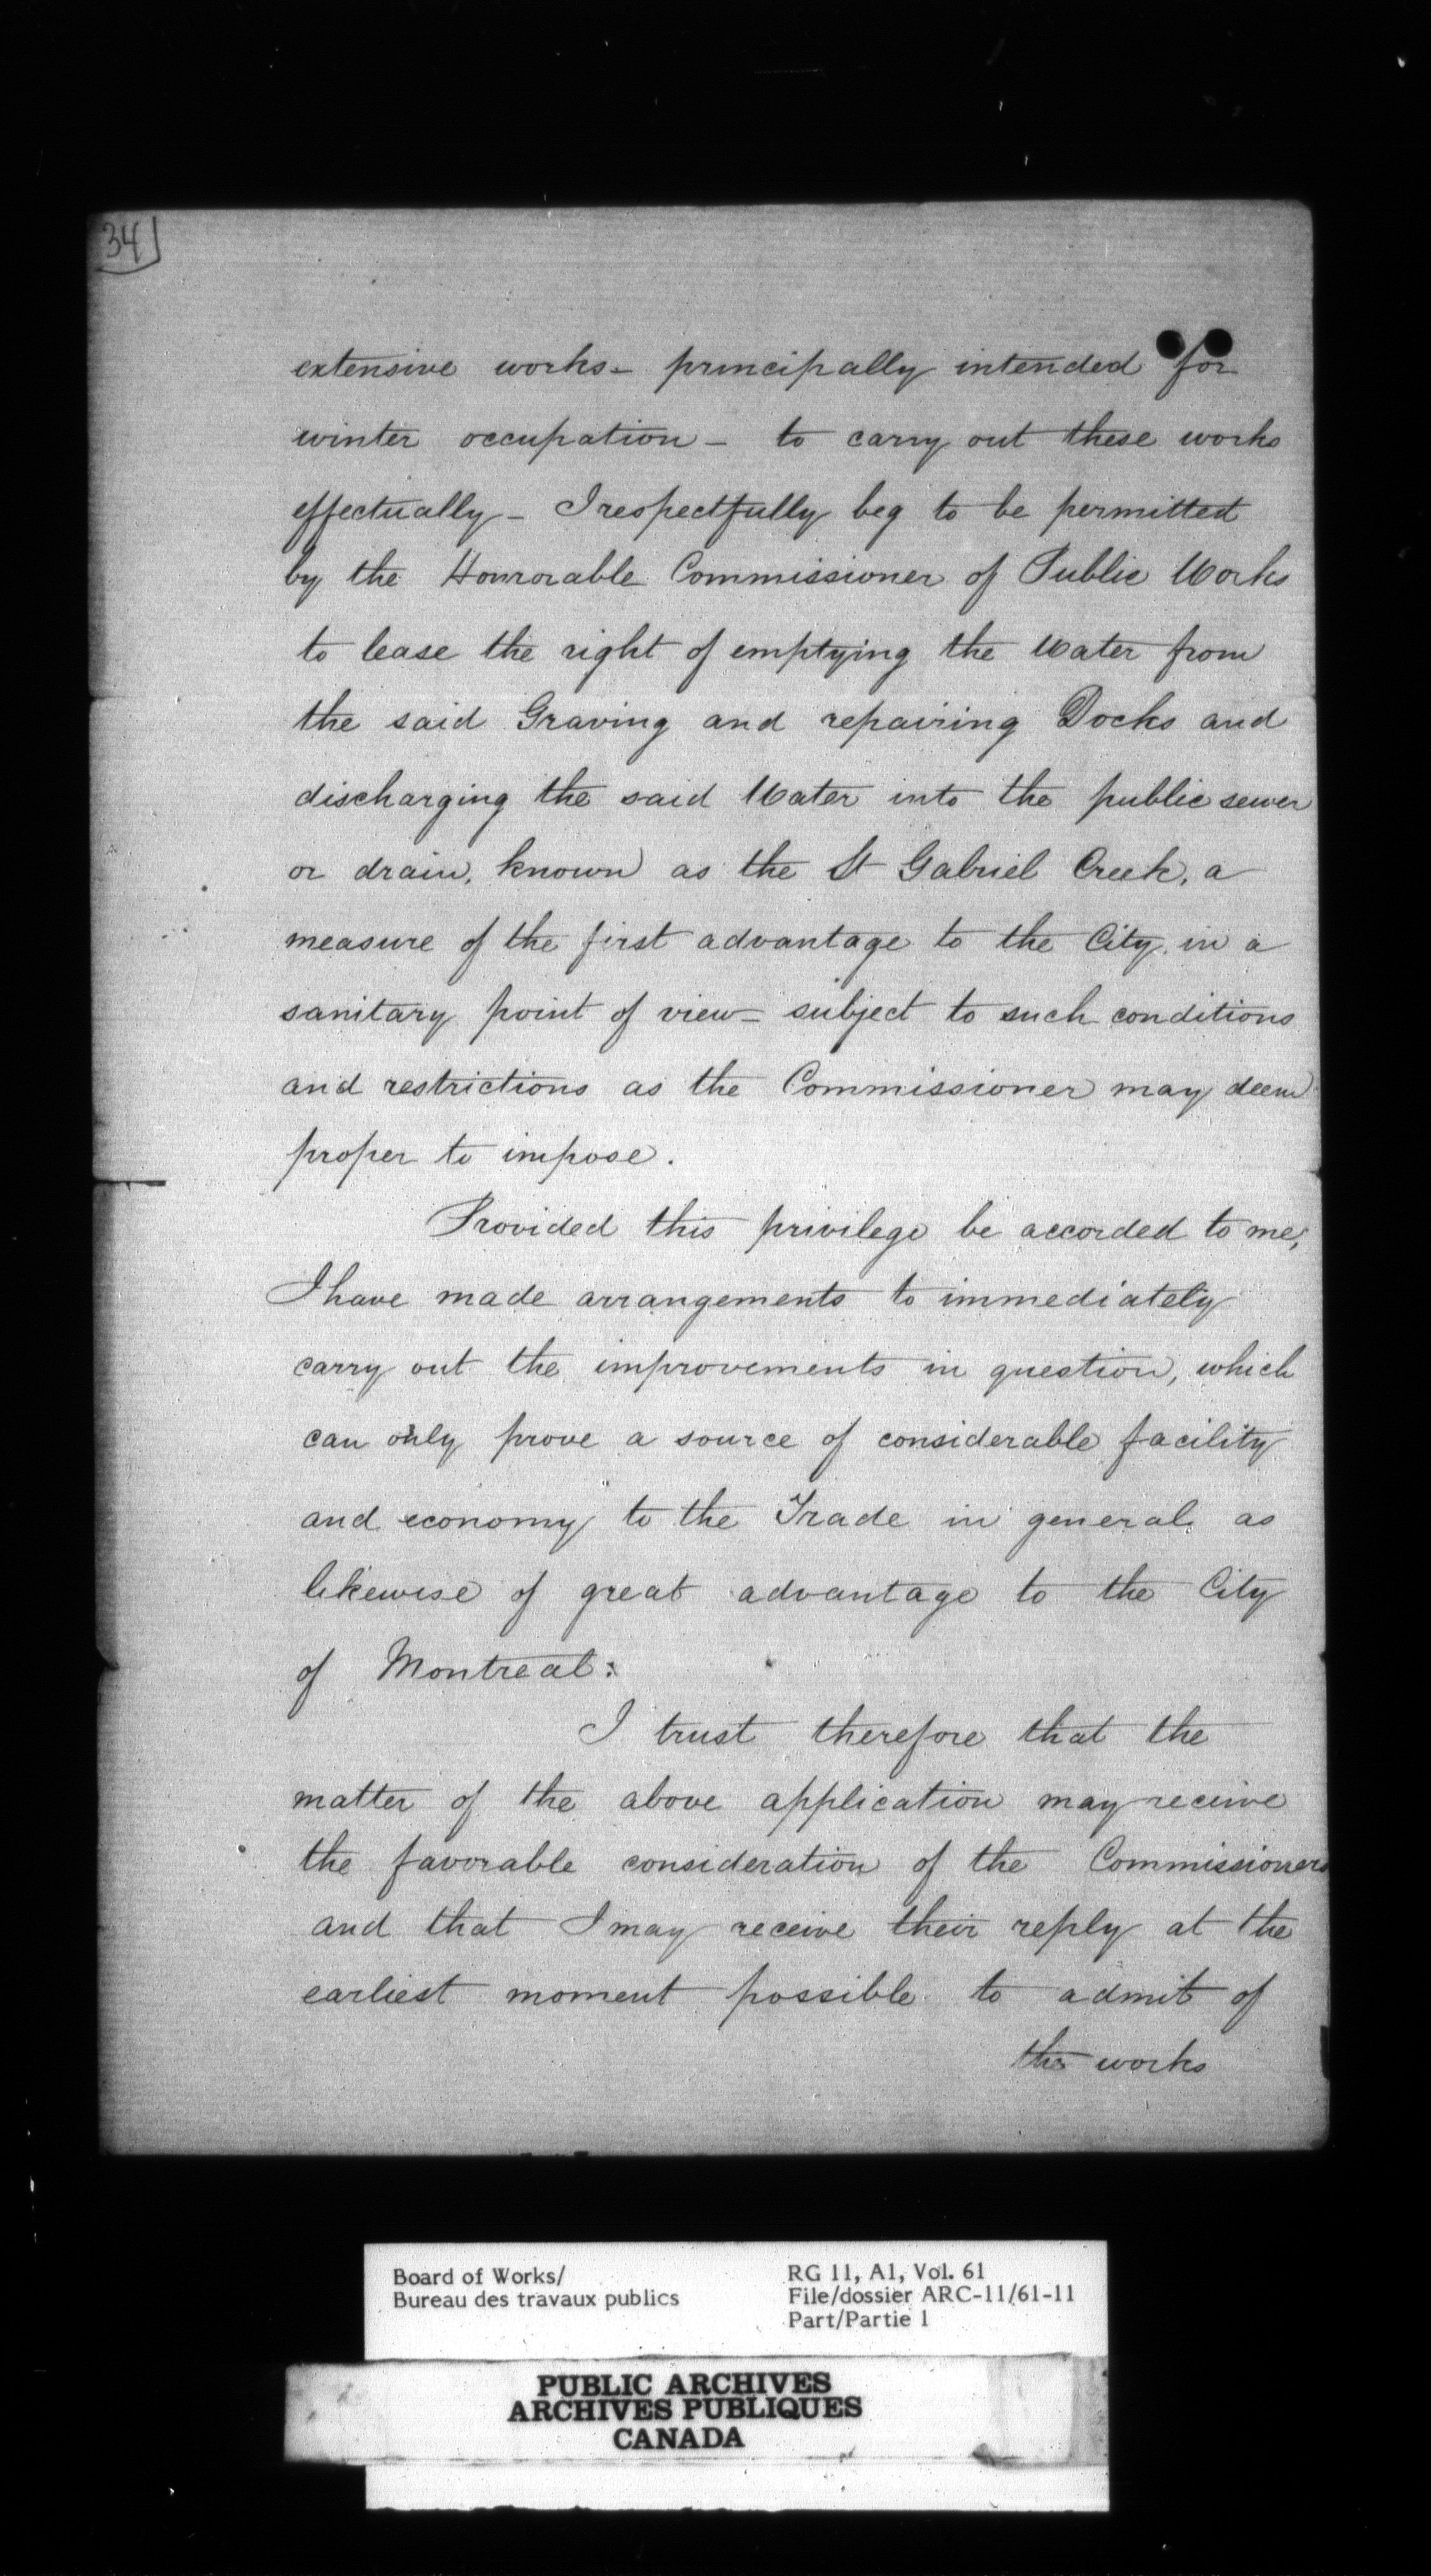 34
extensive works - principally intended for
winter occupation - to carry out these works
effectually - I respectfully beg to be permitted
by the Honorable Commissioner of Public Works
to lease the right of emptying the Water from
the said Graving and repairing Docks and
discharging the said Water into the public sewer
or drain, known as the St Gabriel Creek, a
measure of the first advantage to the City, in a
sanitary point of view - subject to such conditions
and restrictions as the Commissioner may deem
proper to impose.
Provided this privilege be accorded to me,
I have made arrangements to immediately
carry out the improvements in question, which
can only prove a source of considerable facility
and economy to the Trade in general, as
likewise of great advantage to the City
of Montreal:
I trust therefore that the
matter of the above application may receive
the favorable consideration of the Commissioners
and that I may receive their reply at the
earliest moment possible to admit of
the works
Board of Works/
Bureau des travaux publics
RG 11, A1, Vol. 61
File/dossier ARC-11/61-11
Part/Partie 1
PUBLIC ARCHIVES
ARCHIVES PUBLIQUES
CANADA